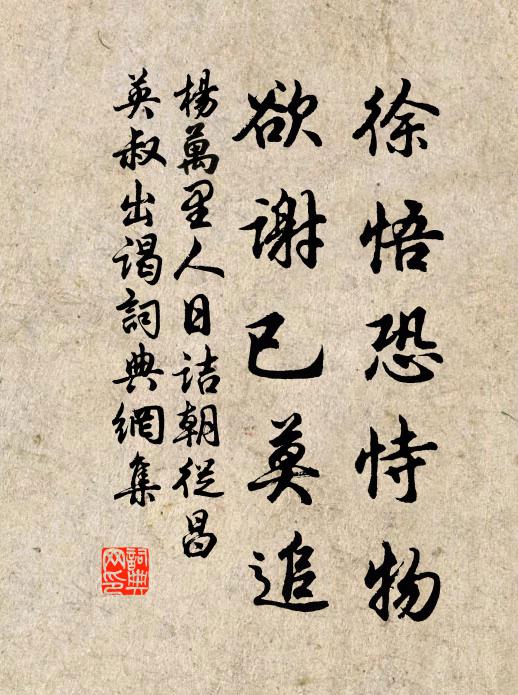 徐悟恐恃物
欲谢已莫追
楊萬里人日诘朝從昌
英叔出谒詞典網集
詞典网印